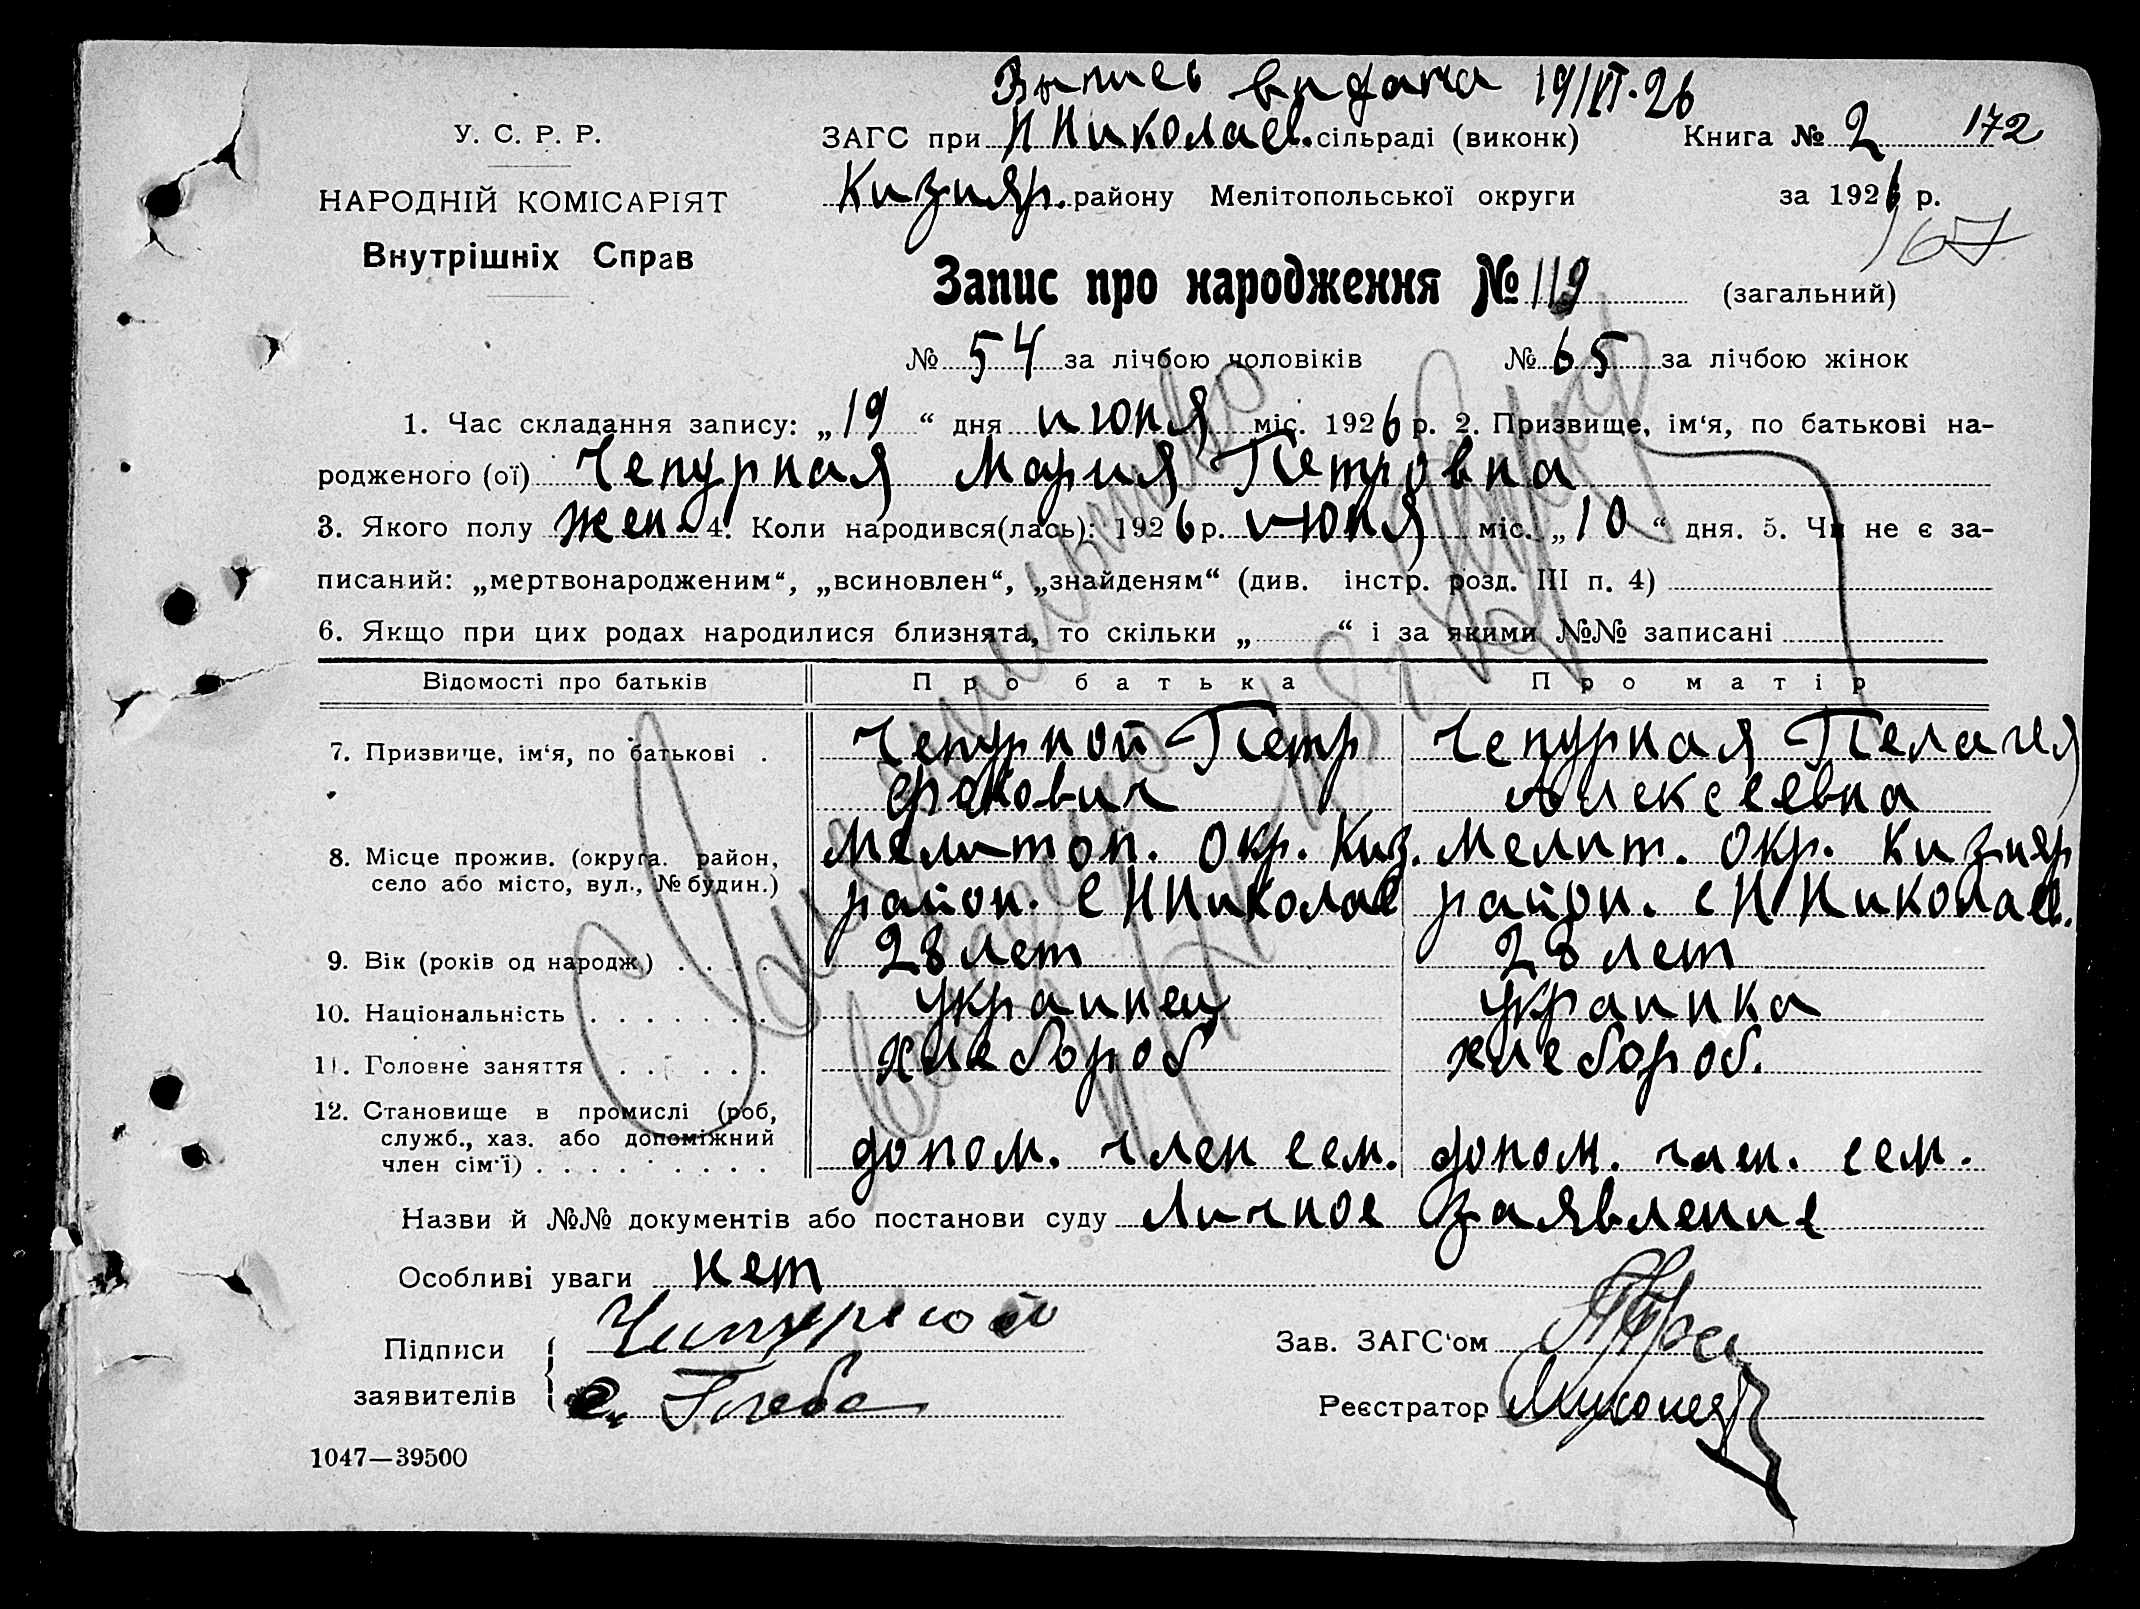 Выпись видана 19/VI-26
У. С. Р. Р.
ЗАГС при Н Николаев. сільраді (виконк) Книга № 2 172
НАРОДНІЙ КОМІСАРІЯТ
Кизияр. району Мелітопольської округи за 1926 р.
167
Внутрішніх Справ
Запис про народження № 119 (загальний)
№ 54 за лічбою чоловіків № 65 за лічбою жінок
1. Час складання запису: „19“ дня июня міс. 1926 р. 2. Призвище, ім‘я, по батькові на-
родженого (ої) Чепурная Мария Петровна
3. Якого полу жен. 4. Коли народився(лась): 1926 р. июня міс. „10“ дня. 5. Чи не є за-
писаний: „мертвонародженим“, „всиновлен“, „знайденям“ (див. інстр. розд. III п. 4)
6. Якщо при цих родах народилися близнята, то скільки „ “ і за якими №№ записані
Відомості про батьків Про батька Про матір
7. Призвище, ім‘я, по батькові . Чепурной Петр Чепурная Пелагея
Алексеевна
8. Місце прожив. (округа. район, Мелитоп. Окр. Киз. Мелит. Окр. Кизияр
село або місто, вул., № будин.) район. с Н Николае район. с Н Николаев.
9. Вік (років од народж.) . . . . 28 лет 28 лет
10. Національність . . . . . . . украинец украинка
11. Головне заняття . . . . . . хлебороб хлебороб.
12. Становище в промислі (роб,
служб., хаз. або допоміжний
член сім‘ї) . . . . . . . . . допом. член сем. допом. член. сем.
Назви й №№ документів або постанови суду Личное заявление
Особливі уваги нет
Підписи Чипурной
Зав. ЗАГС‘ом
заявителів Глеба
Реєстратор
1047—39500